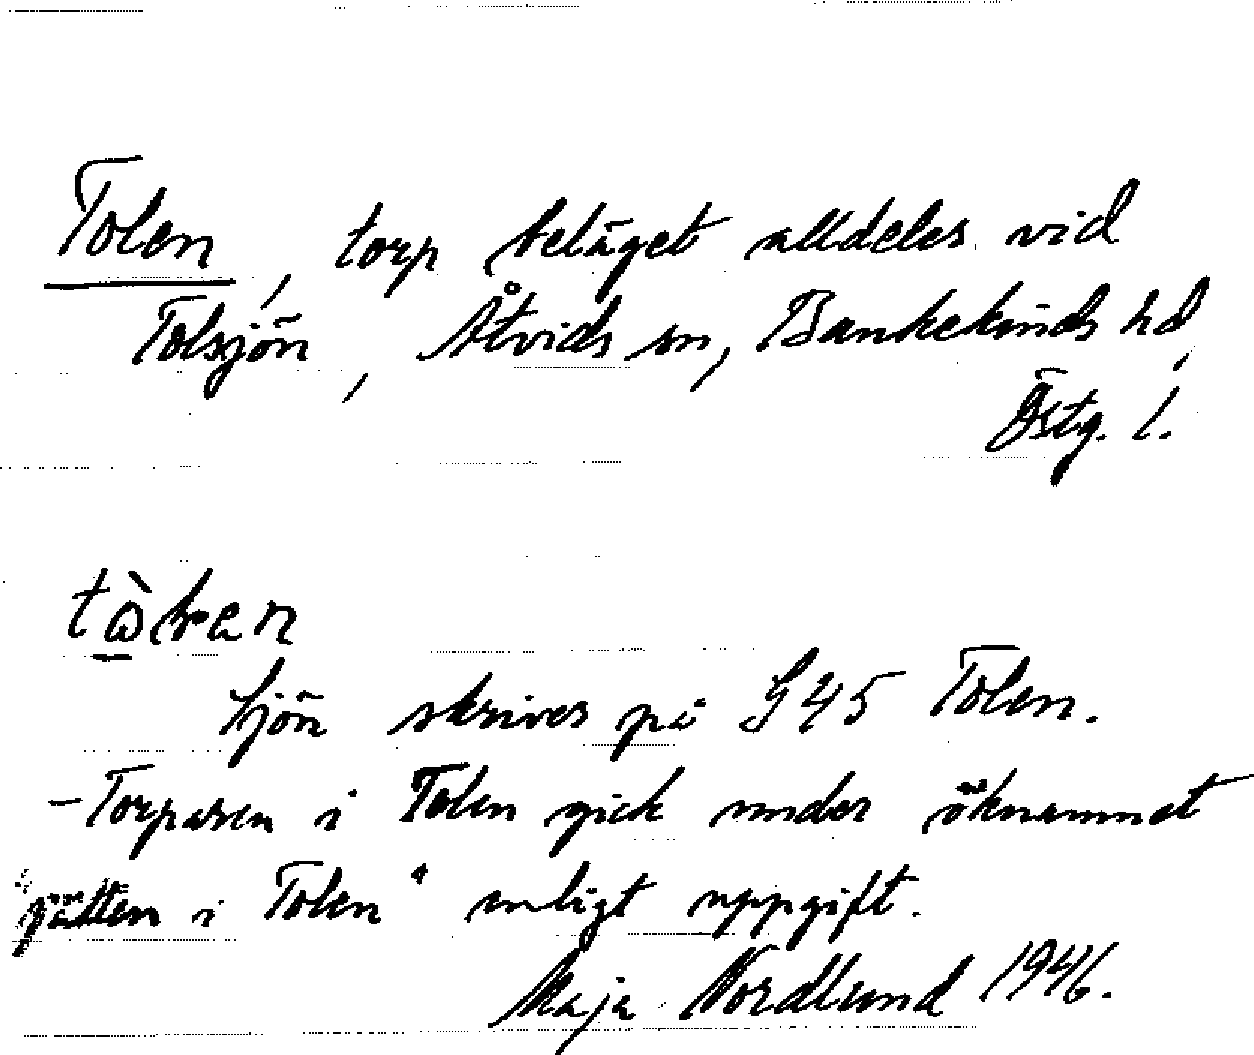 Tolen, torp beläget alldeles vid
Tolsjön, Åtvids sn, Bankekinds hd,
Östg. l.
sjön skrives på G45 Tolen.
- Torparen i Tolen gick under öknamnet
"jätten i Tolen" enligt uppgift.
Maja Nordlund 1946.